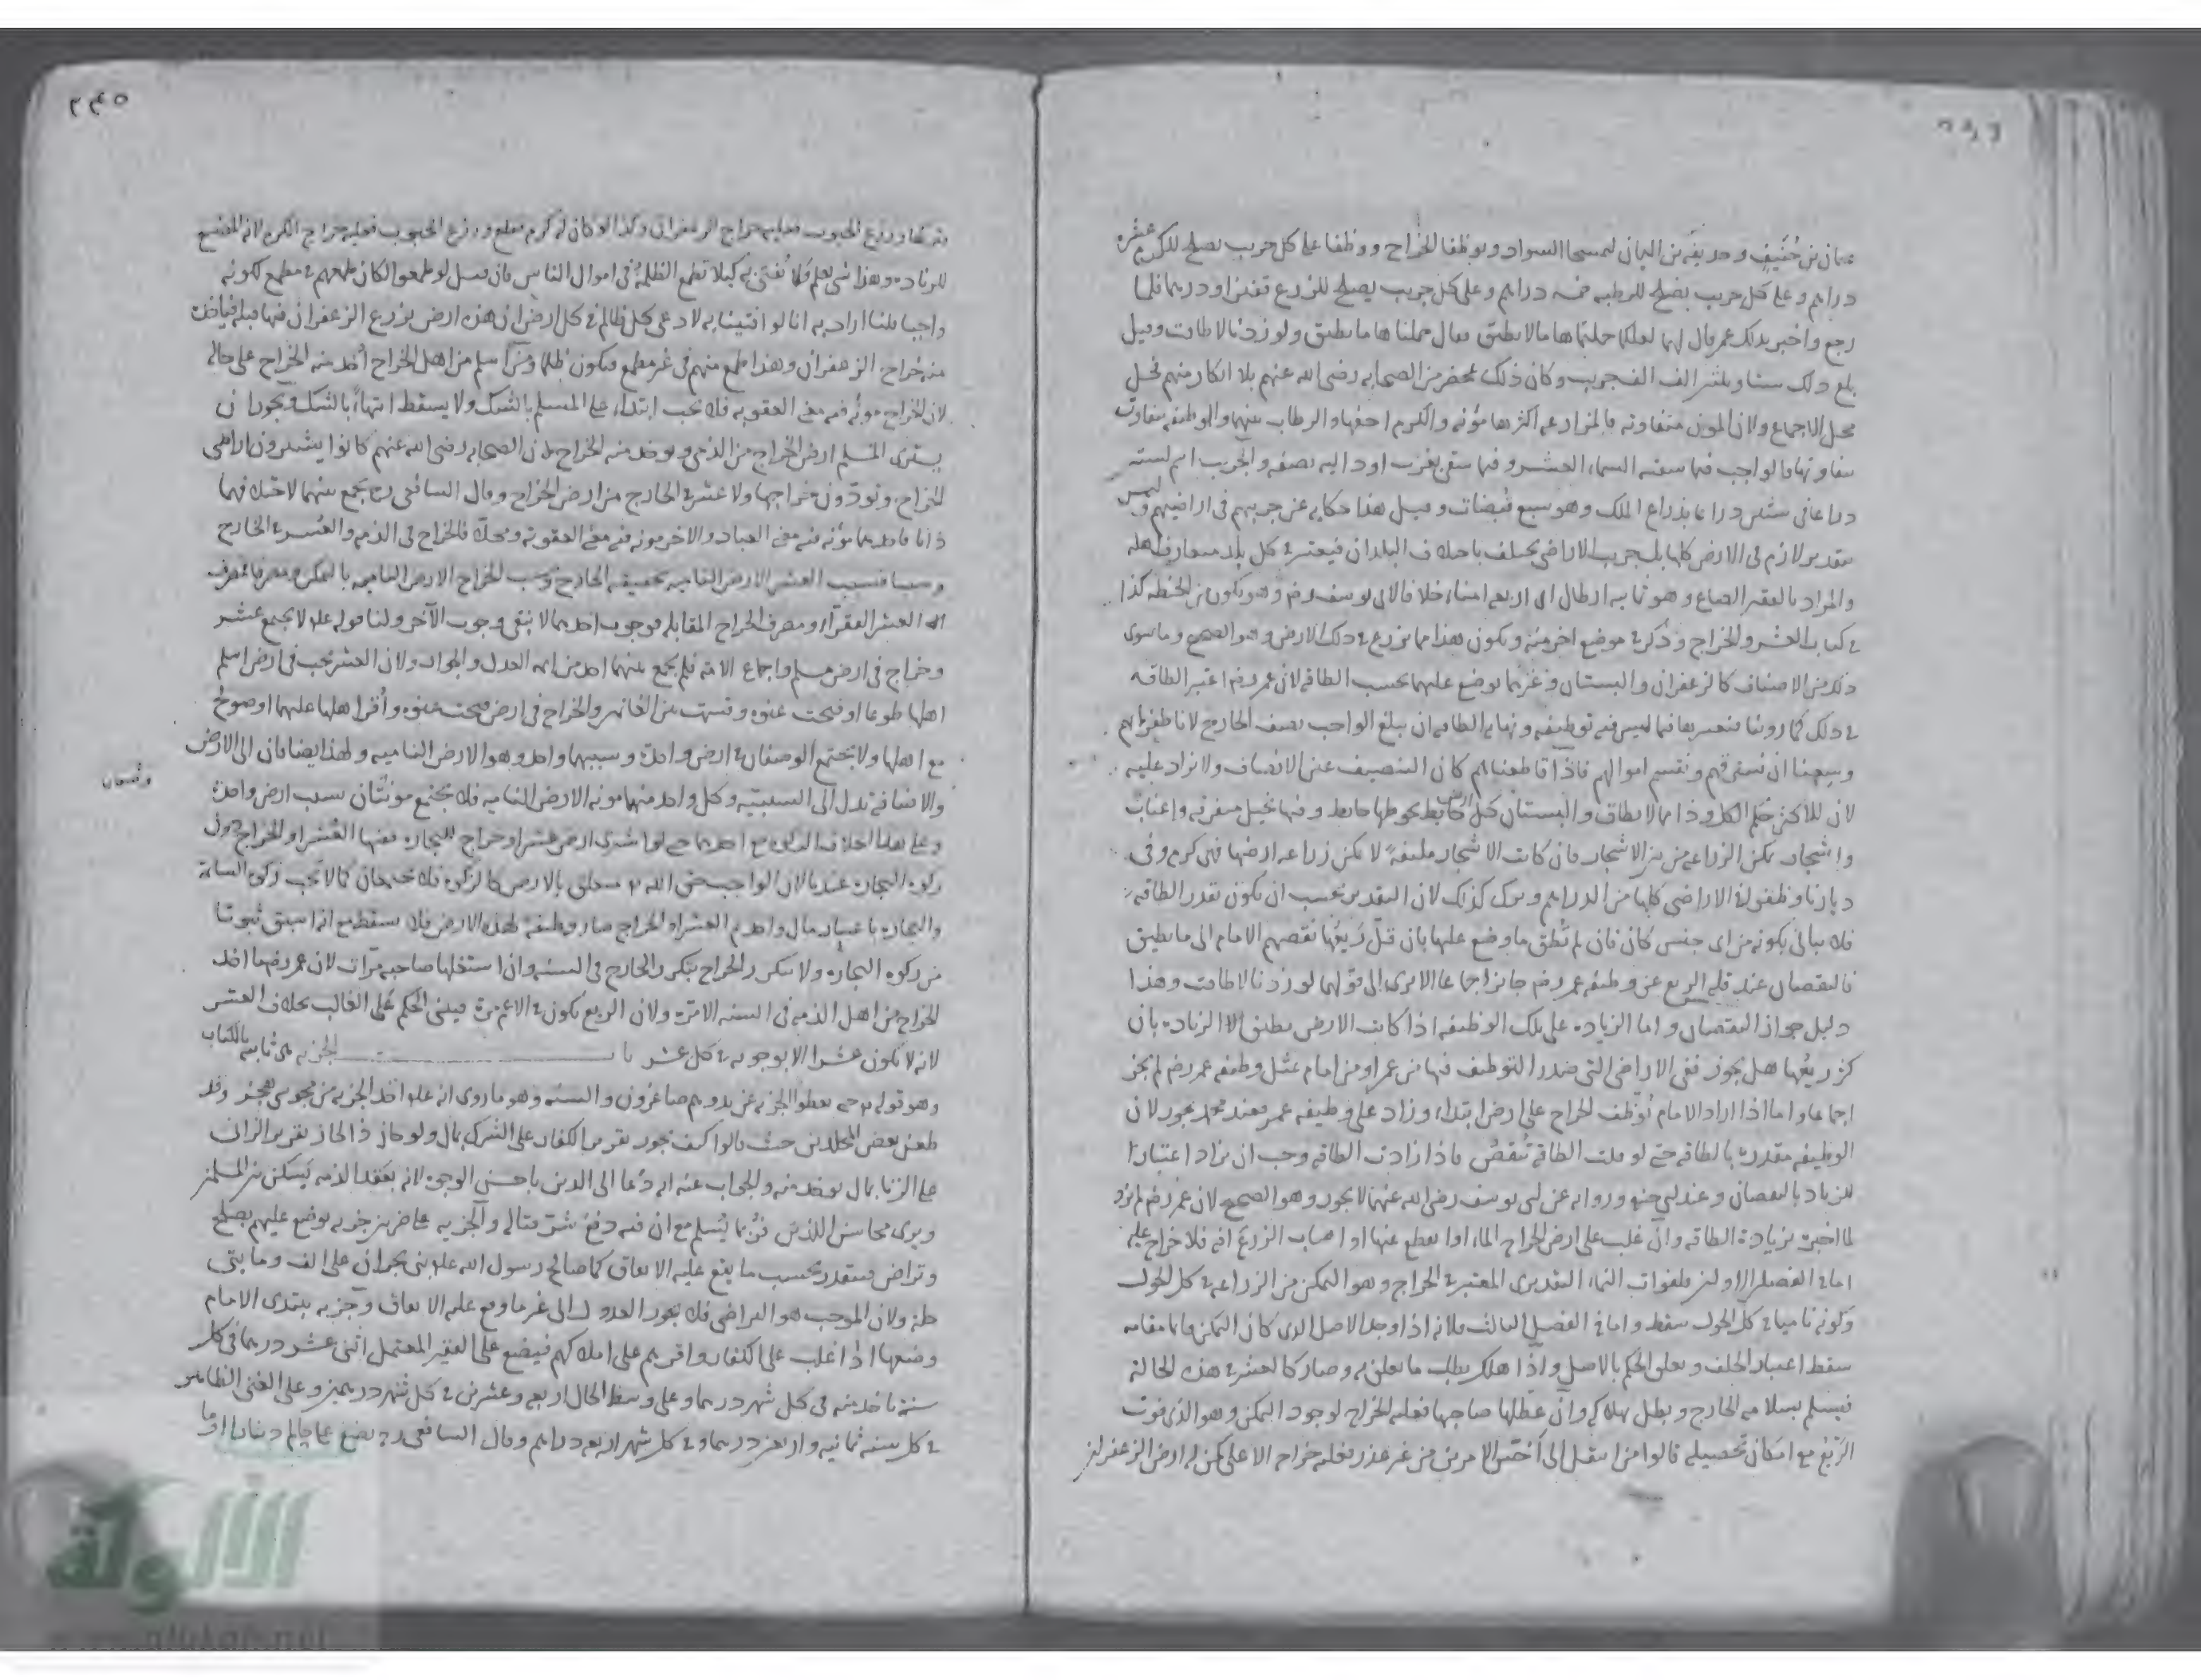 عثمان بن حُنَيفٍ وحذيفه بن اليمان ليمسحا السواد ويوظفا الخراج ووظفا على كل جريب يصلح للكرم عشرة
دراهم وعلى كل جريب يصلح للرطبه خمسه دراهم وعلى كل جريب يصلح للزرع قفيزا ودرهما فلما
رجع واخبر بذلك عمر قال لهما لعلكما حملتماها مالا تطيق فقال حملناها ما تطيق ولو زدنا لاطاقت وقيل
بلغ ذلك ستا وثلثين الف الف جريب وكان ذلك بمحضر من الصحابه رضى الله عنهم بلا انكار منهم فحل
محل الاجماع ولان المؤن متفاوته فالمزارعه اكثرها مؤنه والكرم اخفها والرطاب بينهما والوظيفه تتفاوت
بتفاوتها فالواجب فيما سقته السماء العشر وفيما سقى بغرب او داليه نصفه والجريب اسم لستين
ذراعا فى ستين ذراعا بذراع الملك وهو سبع قبضات وقيل هذا حكايه عن جريبهم فى اراضيهم وليس
بتقدير لازم فى الارض كلها بل جريب الاراضى يختلف باختلاف البلدان فيعتبر فى كل بلد متعارف اهله
والمراد بالقفيز الصاع وهو ثمانيه ارطال اى اربعه امناء خلافا لابى يوسف رضه وهو يكون من الحنطه كذا
فى كتاب العشر والخراج وذكر فى موضع اخر منه ويكون هذا مما يزرع فى ذلك الارض وهو الصحيح وما سوى
ذلك من الاصناف كالزعفران والبستان وغيرهما يوضع عليهما بحسب الطاقه لان عمر رضه اعتبر الطاقه
فى ذلك كما روينا فنعتبرها فيما ليس فيه توظيفه ونهايه الطاقه ان يبلغ الواجب نصف الخارج لانا ظفرنا بهم
وسعنا ان نسترقهم ونقسم اموالهم فاذا قاطعناهم كان التنصيف عين الانصاف ولا نزاد عليه
لان للاكثر حكم الكل وذا مما لا يطاق والبستان كل ارض يحوطها حائط وفيها نخيل متفرقه واعناب
واشجار يمكن الزراعه من بين الاشجار فان كانت الاشجار ملتفةً لا يمكن زراعه ارضها فهى كرم وفى
ديارنا وظفوا فى الاراضى كلها من الدراهم وترك كذلك لان التقدير يجب ان يكون بقدر الطاقه
فلا يبالى بكونه من اى جنس كان فان لم تُطق ما وضع عليها بان قلّ ريعُها نقصهم الامام الى ما يطيق
فالنقصان عند قله الريع عن وظيفه عمر رضه جايز اجماعا الا يرى الى قولهما لو زدنا لاطاقت وهذا
دليل جواز النقصان واما الزياده على تلك الوظيفه اذا كانت الارض تطيق الزياده بان
كثر ريعُها هل يجوز ففى الاراضى التى صدر التوظيف فيها من عمر او من امام بمثل وظيفه عمر رضه لم يجز
اجماعا واما اذا اراد الامام توظيف الخراج على ارض ابتداء وزاد على وظيفه عمر فعند محمد يجوز لان
الوظيفه مقدره بالطاقه حتى لو قلت الطاقه تُنقصُ فاذا زادت الطاقه وجب ان يزاد اعتبارا
للزياده بالنقصان وعند ابى حنيفه وروايه عن ابى يوسف رضى الله عنهما لا يجوز وهو الصحيح لان عمر رضه لم يزد
لما اخبره بزيادة الطاقه وان غلب على ارض الخراج الماء او انقطع عنها او اصاب الزرع آفه فلا خراج عليه
اما فى الفصلين الاولين فلفوات النماء التقديرى المعتبر فى الخراج وهو التمكن من الزراعه فى كل الحول
وكونه ناميا فى كل الحول سقط واما فى الفصل الثالث فلانه اذا وجد الاصل الذى كان التمكن قائما مقامه
سقط اعتبار الخلف وتعلق الحكم بالاصل واذا هلك بطل ما تعلق به وصار كالعشر فى هذه الحالة
فيسلم بسلامه الخارج ويبطل بهلاكه وان عطلها صاحبها فعليه الخراج لوجود التمكن وهو الذى فوت
الرّيع مع امكان تحصيله قالوا من انتقل الى اخسّ الامرين من غير عذر فعليه خراج الاعلى كمن له ارض الزعفران
فتركها وزرع الحبوب فعليه خراج الزعفران وكذا لو كان له كرم فقلع وزرع الحبوب فعليه خراج الكرم لانه المضيع
للزياده وهذا شىء يعلم ولا يُفتى به كيلا تطمع الظلمة فى اموال الناس فان قيل لو طمعوا لكان طمعهم فى مطمع لكونه
واجبا قلنا اراد به انا لو افتينا به لادعى كل ظالم فى كل ارض ان هذه ارض يزرع الزعفران فيها قبله فياخذ
منه خراج الزعفران وهذا طمع منهم فى غير مطمع فيكون ظلما ومن اسلم من اهل الخراج اخذ منه الخراج على حاله
لان الخراج مؤنه فيه معنى العقوبه فلا تجب ابتداء على المسلم بالشك ولا يسقط انتهاءً بالشك ويجوز ان
يشترى المسلم ارض الخراج من الذمى ويوخذ منه الخراج لان الصحابه رضى الله عنهم كانوا يشترون اراضى
الخراج ويؤدّون خراجها ولا عشر فى الخارج من ارض الخراج وقال الشافعى رح يجمع بينهما لاختلافهما
ذاتا فاحدهما مؤنه فيه معنى العباده والاخر مؤنه فيه معنى العقوبه ومحلا فالخراج فى الذمه والعشر فى الخارج
وسببا فسبب العشر الارض الناميه بحقيقه الخارج وسبب الخراج الارض الناميه بالتمكن ومصرفا فمصرف
العشر الفقرآء ومصرف الخراج المقابله فوجوب احدهما لا ينفى وجوب الآخر ولنا قوله علم لا يجتمع عشر
وخراج فى ارض مسلم واجماع الامه فلم يجمع بينهما احد من ائمه العدل والجوار ولان العشر يجب فى ارض اسلم
اهلها طوعا او فتحت عنوه وقسمت بين الغانمين والخراج فى ارض فتحت عنوه واُقر اهلها عليها او صولح
مع اهلها ولا يجتمع الوصفان فى ارض واحدة وسببهما واحد وهو الارض الناميه ولهذا يضافان الى الارض
والاضافة تدل الى السببيه وكل واحد منهما مؤنه الارض الناميه فلا يجتمع مؤنتان بسبب ارض واحدة
وعلى هذا الخلاف الزكوه مع احدهما حتى لو اشترى ارض عشر او خراج للتجاره ففيها العُشر او الخراج دون
زكوه التجاره عندنا لان الواجب حق الله تع متعلق بالارض كالزكوه فلا تجتمعان كما لا تجب زكوه السائمة
والتجاره باعتبار مال واحد ثم العشر او الخراج صار وظيفه لهذه الارض فلا يسقط مع انه اسبق ثبوتا
من زكوه التجاره ولا يتكرر الخراج بتكرر الخارج فى السنه وان استغلها صاحبه مرّات لان عمر رضه ما اخذ
الخراج من اهل الذمه فى السنه الا مره ولان الريع يكون فى الاعم مرة فيبنى الحكم على الغالب بخلاف العشر
لانه لا يكون عشرا الا بوجوبه فى كل عشر باب الجزيه هى ثابته بالكتاب
وهو قوله تع حتى يعطوا الجزيه عن يد وهم صاغرون والسنه وهو ما روى انه علم اخذ الجزيه من مجوس هجر وقد
طعن بعض الملحدين حيث قالوا كيف يجوز تقرير الكفار على الشرك بمال ولو جاز ذا لجاز تقرير الزانى
على الزنا بمال يوخذ منه والجواب عنه انه دُعا الى الدين باحسن الوجوه لانه بعقد الذمه يَسكن بين المسلمين
ويرى محاسن الدين فربما يُسلم مع ان فيه دفع شرّ قتاله والجزيه على ضربين جزيه يوضع عليهم بصلح
وتراض فيتقدر بحسب ما يقع عليه الاتفاق كما صالح رسول الله علم بنى نجران على الف ومايتى
حلة ولان الموجب هو التراضى فلا يجوز العدول الى غير ما وقع عليه الاتفاق وجزيه يبتدى الامام
وضعها اذا غلب على الكفار واقرهم على املاكهم فيضع على الفقير المعتمل اثنى عشر درهما فى كل
سنة ياخذ منه فى كل شهر درهما وعلى وسط الحال اربعه وعشرين فى كل شهر درهمين وعلى الغنى الظاهر
فى كل سنه ثمانيه واربعين درهما فى كل شهر اربعه دراهم وقال الشافعى رح يضع على كل حالم دينارا او
الألوكة